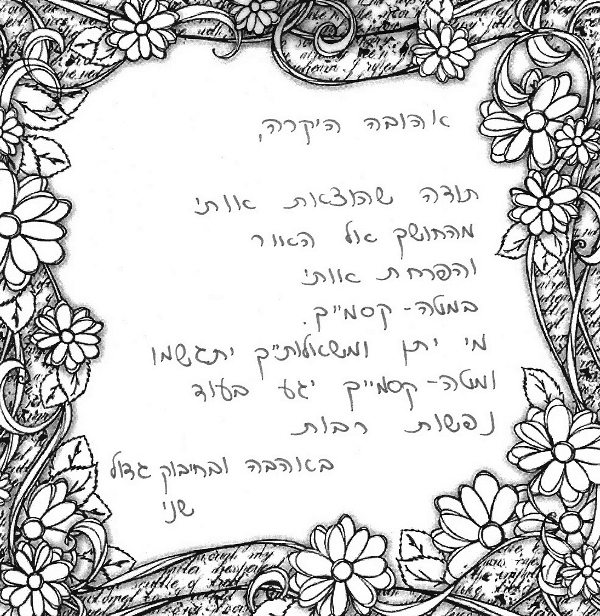 אהובה היקרה,
תודה שהוצאת אותי
מהחושך אל האור
והפרחת אותי
במטה-קסמייך.
מי יתן ומשאלותייך יתגשמו
ומטה-קסמייך יגע בעוד
נפשות רבות
באהבה ובחיבוק גדול
שני